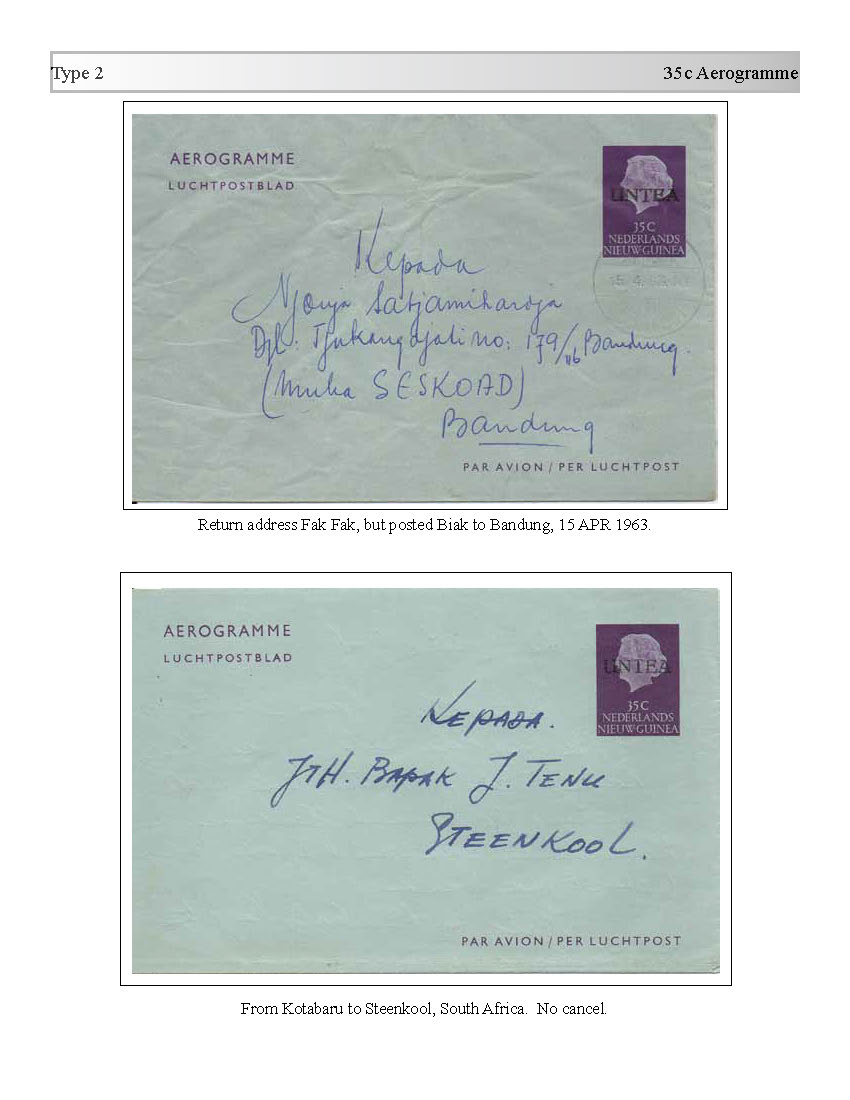 Type 2
35c Aerogramme
AEROGRAMME
LUCHTPOSTBLAD
UNTEA
35 C
NEDERLANDS
NIEUW-GUINEA
Kepada
Njonja Satjamihardja
Djl: Tjukangdjati no: 179/
Bandung.
(Muka SESKOAD)
Bandung
PAR AVION / PER LUCHTPOST
Return address Fak Fak, but posted Biak to Bandung, 15 APR 1963.
AEROGRAMME
LUCHTPOSTBLAD
UNTEA
35 C
NEDERLANDS
NIEUW-GUINEA
KEPADA.
JTH. BAPAK J. TENU
STEENKOOL.
PAR AVION / PER LUCHTPOST
From Kotabaru to Steenkool, South Africa. No cancel.